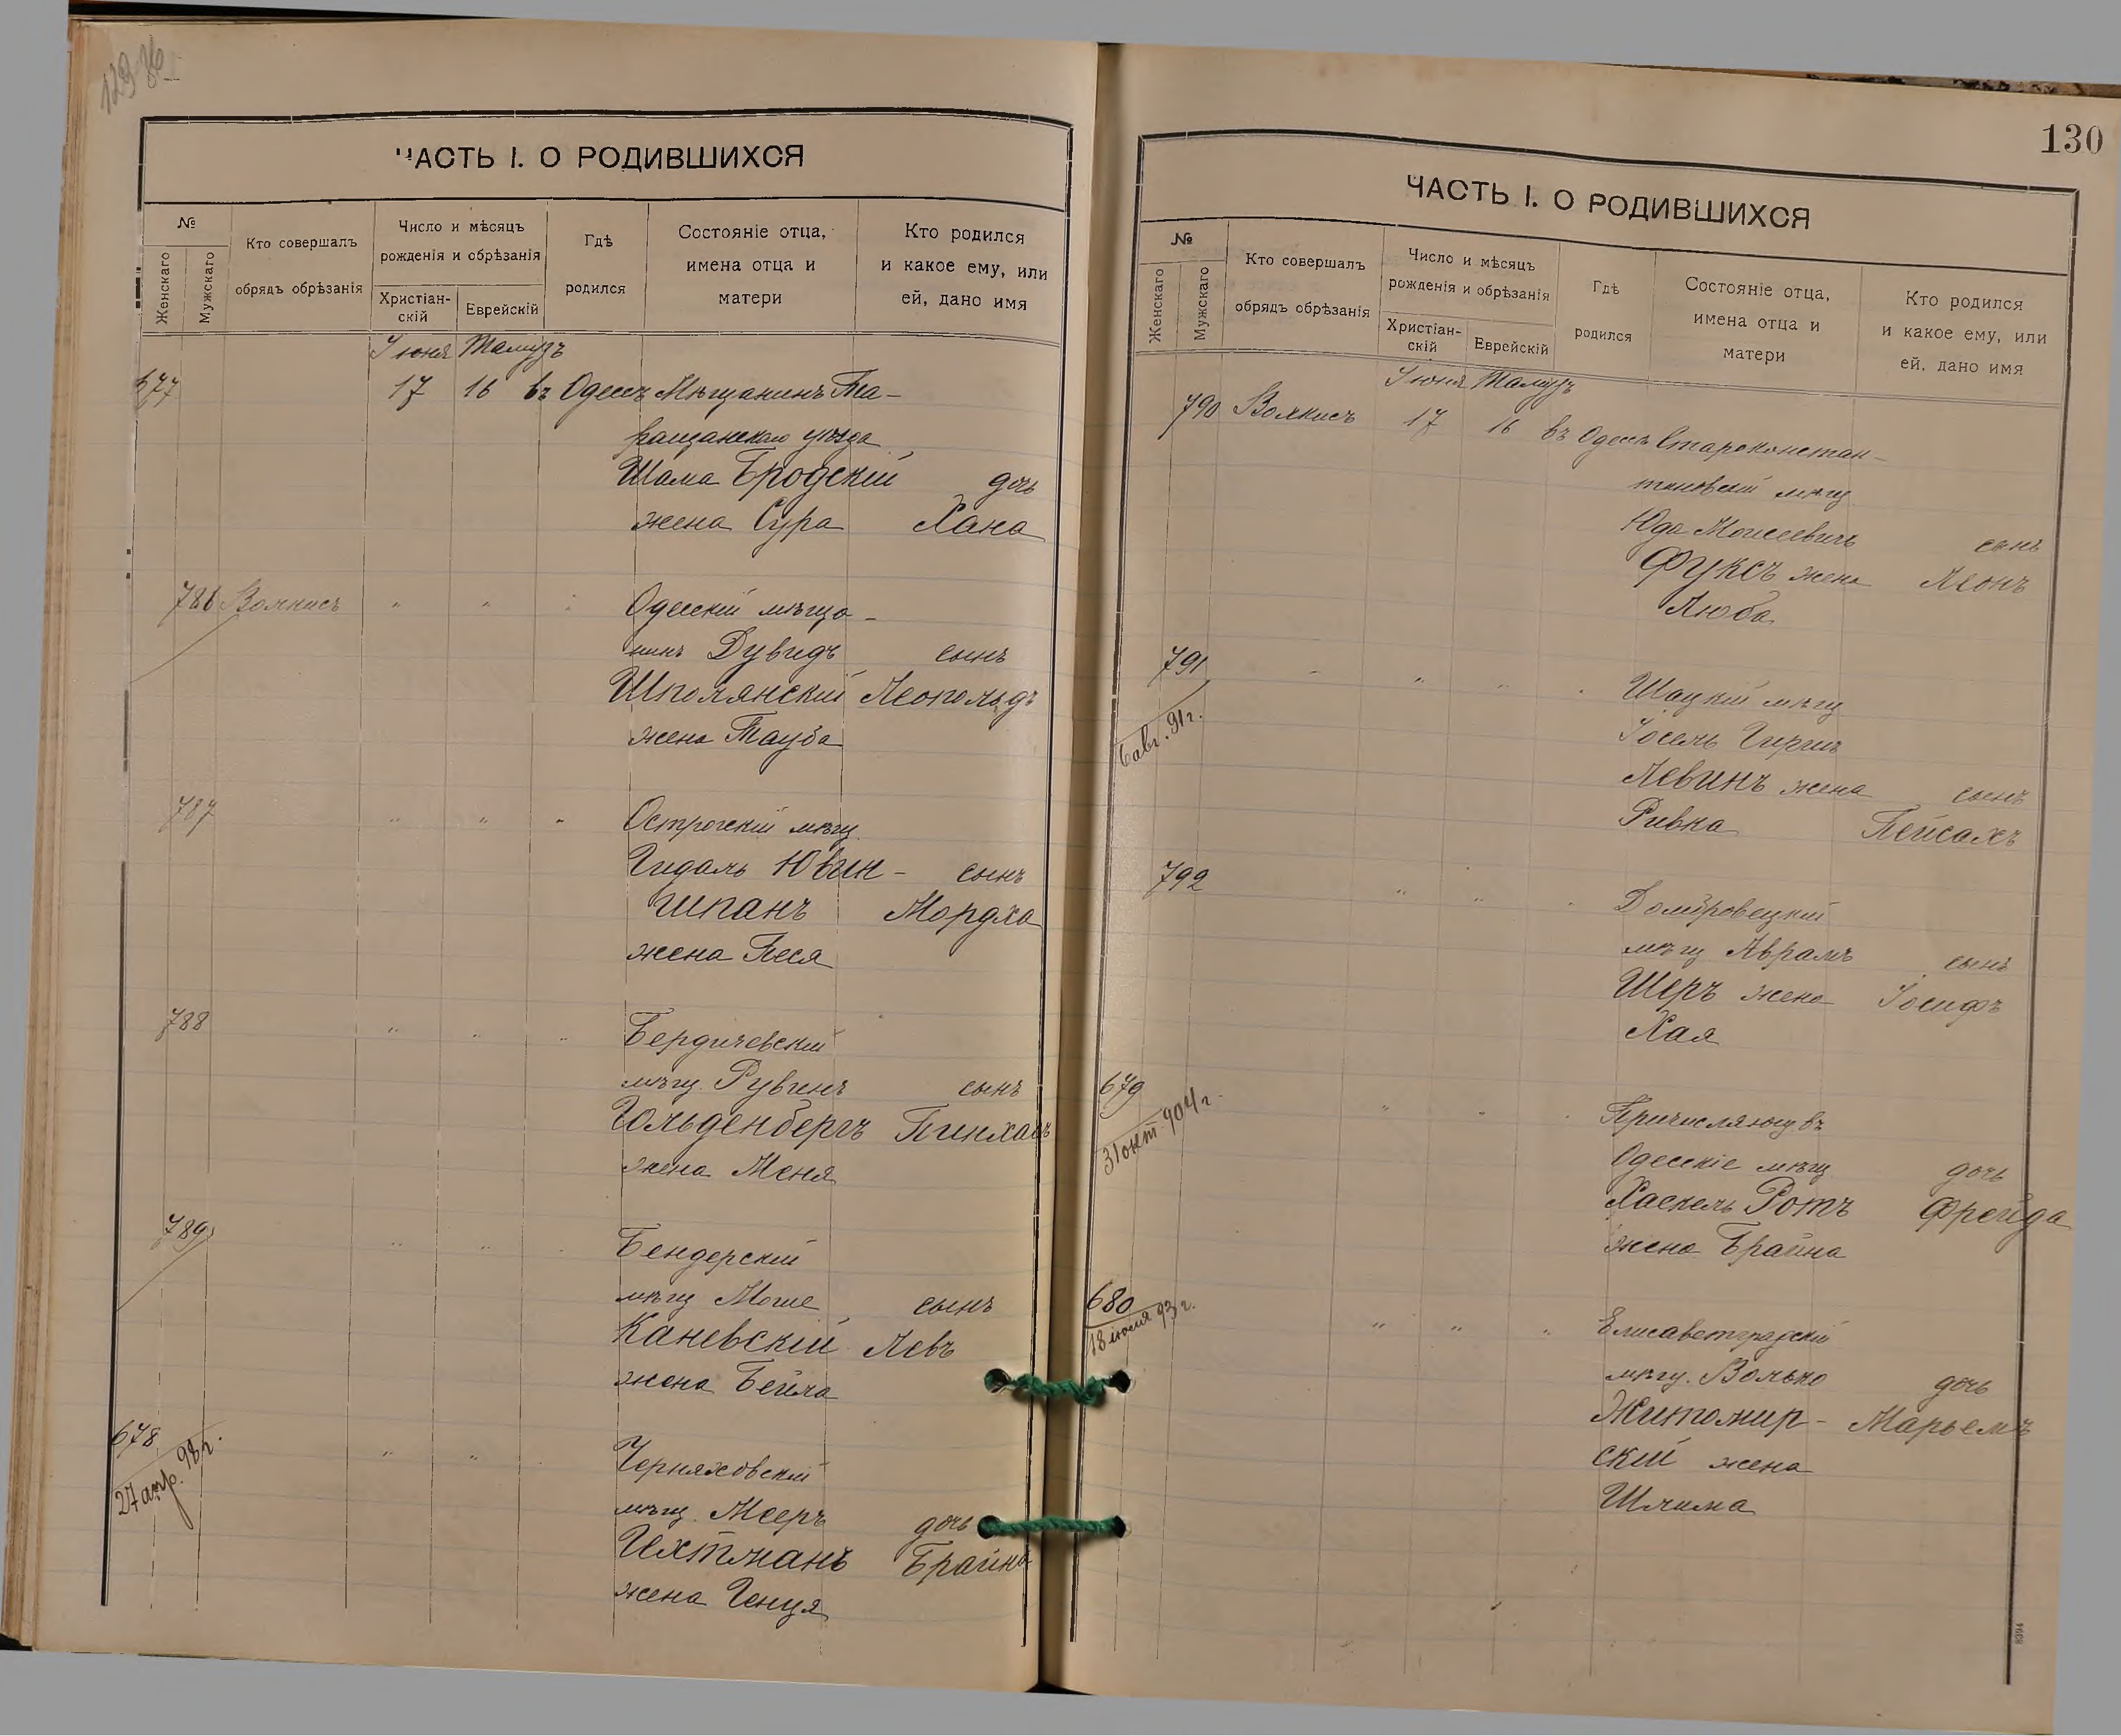 ЧАСТЬ I. О РОДИВШИХСЯ
№
Женскаго
Мужскаго
Кто совершалъ
обрядъ обрѣзанія
Число и мѣсяцъ
рожденія и обрѣзанія
Христіан-
скій
Еврейскій
Гдѣ
родился
Состояніе отца,
имена отца и
матери
Кто родился
и какое ему, или
ей, дано имя
Іюня Тамузъ
677 17 16 въ Одессѣ Мѣщанинъ Та-
ращанскаго уѣзда
Шама Бродскій дочь
жена Сура Хана
786 Волкисъ " " " Одесскій мѣща-
нинъ Дувидъ сынъ
Шполянскій Леопольдъ
жена Тауба
787 " " " Острогскій мѣщ.
Гидаль Ювин- сынъ
шпанъ Мордха
жена Песя
788 " " " Бердичевскій
мѣщ. Рувинъ сынъ
Гольденбергъ Пинхасъ
жена Меня
789 " " " Бендерскій
мѣщ Моше сынъ
Каневскій Левъ
жена Бейла
678 " " Черняховскій
27 апр. 98 г.
мѣщ. Мееръ дочь
Ихтманъ Брайна
жена Генця
130
ЧАСТЬ I. О РОДИВШИХСЯ
№
Женскаго
Мужскаго
Кто совершалъ
обрядъ обрѣзанія
Число и мѣсяцъ
рожденія и обрѣзанія
Христіан-
скій
Еврейскій
Гдѣ
родился
Состояніе отца,
имена отца и
матери
Кто родился
и какое ему, или
ей, дано имя
Іюня Тамузъ
790 Волкисъ 17 16 въ Одессѣ Староконстан-
тиновскій мѣщ
Юда Моисеевичъ сынъ
Фуксъ жена Леонъ
Люба
791 " " " " Шацкій мѣщ
6 авг. 91 г.
Іосель Гирш
Левинъ жена сынъ
Ривка Пейсахъ
792 " " " Домбровецкій
мѣщ Аврамъ сынъ
Шеръ жена Іосифъ
Хая
679 " " " Причисляющ въ
31 окт. 904 г.
Одесскіе мѣщ дочь
Хаскель Ротъ Фрейда
жена Брайна
680 " " " Елисаветградскій
18 іюля 93 г.
мѣщ. Волько дочь
Житомир- Марьемъ
скій жена
Шлима
8394